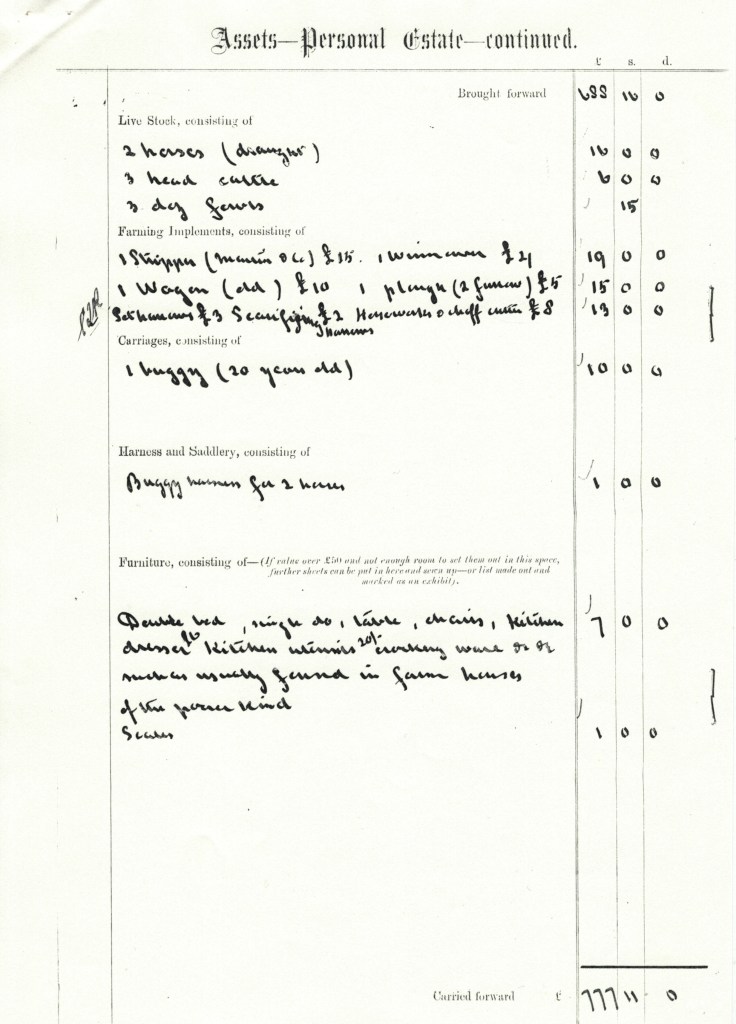 Assets—Personal Estate—continued.
£ s. d.
Brought forward 688 16 0
Live Stock, consisting of
2 horses (draught) 16 0 0
3 head cattle 6 0 0
3 doz fowls 15
Farming Implements, consisting of
1 Stripper (Martin & Co) £15. 1 Winnower £4 19 0 0
1 Wagon (old) £10 1 plough (2 furrow) £5 15 0 0
Set harrows £3 Scarifying £2 Horseworks & chaff cutter £8 13 0 0
harrows
Carriages, consisting of
1 buggy (20 years old) 10 0 0
Harness and Saddlery, consisting of
Buggy harness for 2 horses 1 0 0
Furniture, consisting of—(If value over £50 and not enough room to set them out in this space,
further sheets can be put in here and sewn up—or list made out and
marked as an exhibit).
Double bed, single do, table, chairs, kitchen 7 0 0
dresser £6 kitchen utensils 20/- crockery ware &c &c
such as usually found in farm houses
of the poorer kind
Scales 1 0 0
Carried forward £ 777 11 0